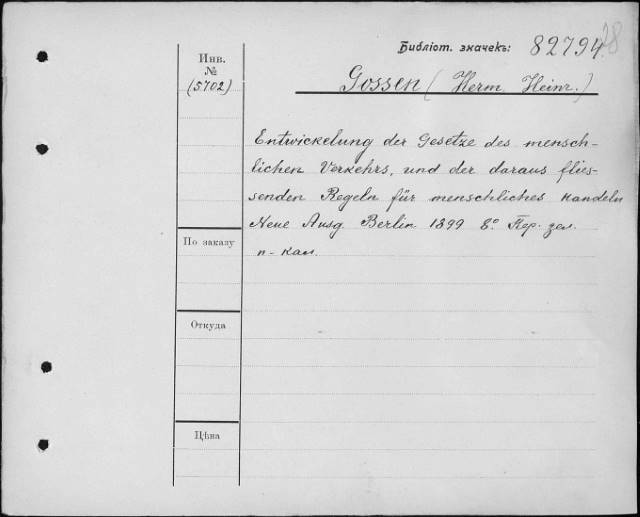 Библіот. значекъ: 82794 28
Инв.
№
(5702)
Gossen (Herm. Heinr.)
Entwickelung der Gesetze des mensch-
lichen Verkehrs, und der daraus flies-
senden Regeln für menschliches Handeln
Neue Ausg. Berlin 1899 8° Пер. зел.
п-кал.
По заказу
Откуда
Цѣна